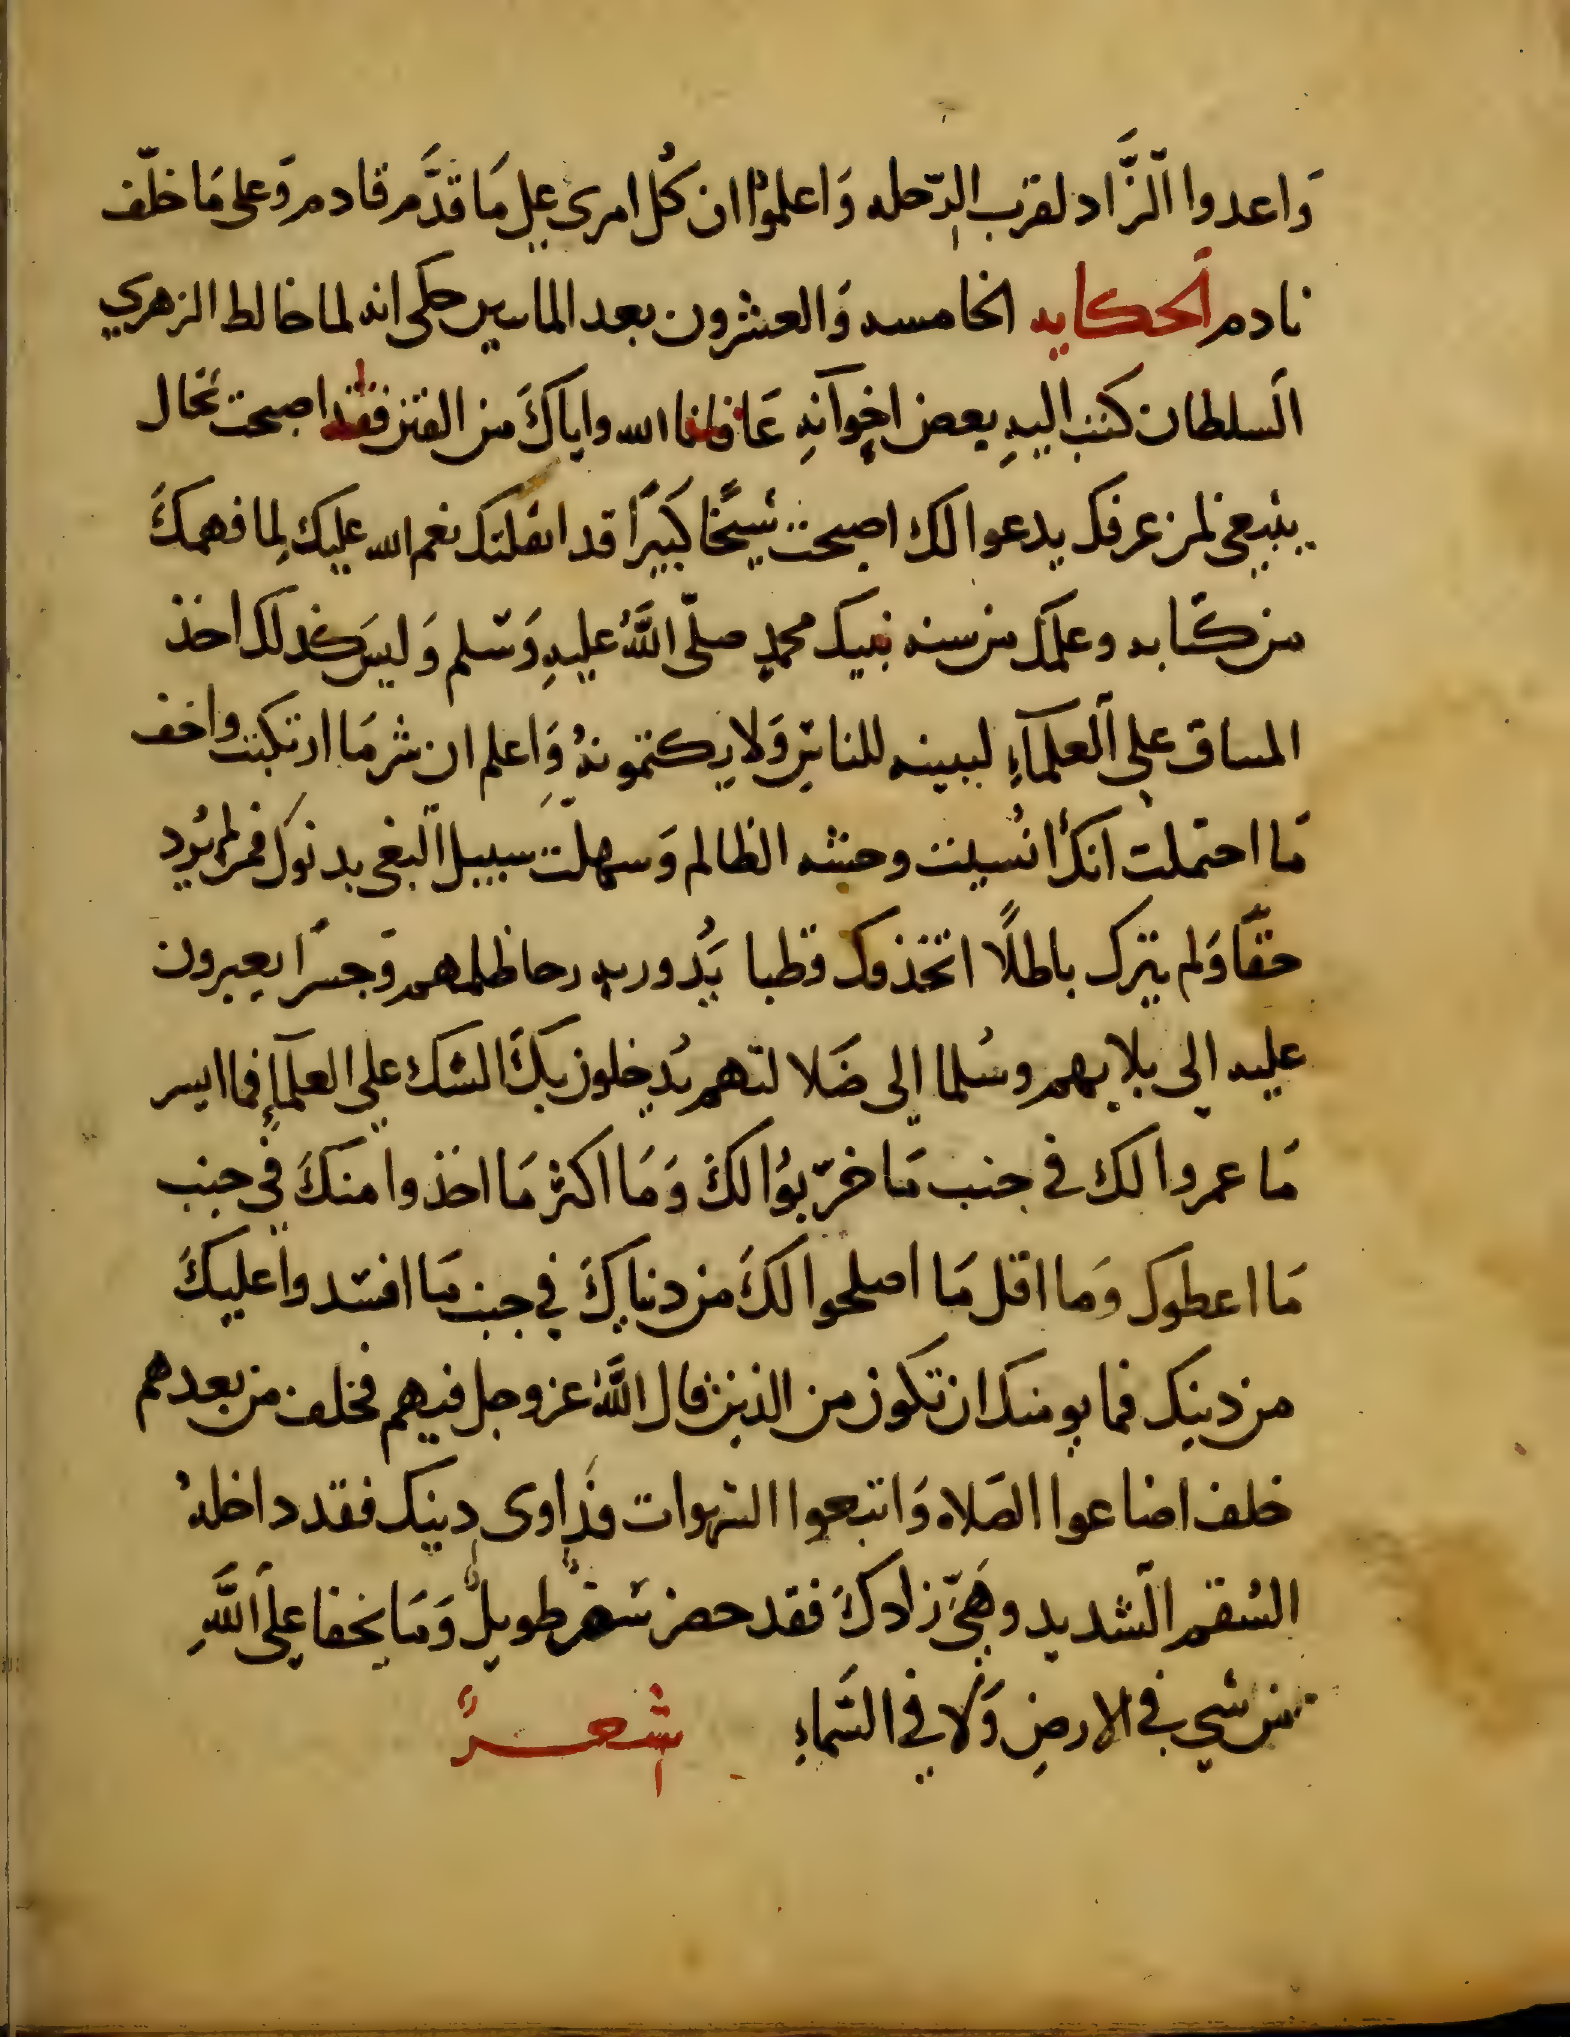 وَاعدوا الزَّاد لقرب الرّحله وَاعلموُا ان كُل امرى على مَا قدَّم قادم وَعلى مَا خلّف
نادم الحكايه الخامسه وَالعشرون بعد الماىىن حكى انه لما خالط الزهري
السلطان كتب اليهِ بعض اخوَانهِ عَافانا الله واياكَ من الفتن فقد اصبحت بحَال
ينبغى لمن عرفك يدعوا لك اصبحت شيخًا كبيرًا قد اثقلتك نعم الله عليك لِما فهمكَ
من كتابه وعلمك من سنه نبيك محمدٍ صلّى اللَّهُ عليهِ وَسّلم وَليسَ كذلك اخذ
المىىاق على العلمآءِ لىبىىنه للناسِ وَلا يكتمونهُ وَاعلم ان شر مَا ارتكبت واخف
مَا احتملت انك أنُسيت وحشه الظالم وَسهلّت سبيل البغى بدنوك فمن لم يُرد
حقًا وَلم يترك باطلًا اتخذوك قطبا يَدُور به رحا ظلمهم وَجسرًا يعبرون
عليه الى بلايهم وسُلما الى ضَلالتهم يُدخلون بكَ الشك على العلمآءِ فما ايسر
مَا عمروا لك في جنب مَا خرّبوُا لكَ وَمَا اكثر مَا اخذوا منكَ في جنب
مَا اعطوك وَما اقل مَا اصلحوا لكَ من دنياكَ في جنب مَا افسَدوا عليكَ
من دينك فما يومنك ان تكون من الذين قال اللَّهُ عز وجل فيهم فخلف من بعدهم
خلف اضاعوا الصَلاه وَاتبعوا الشهوات فدَاوى دِينك فقد داخلهُ
السُقم الشديد وهَيّ زادكَ فقد حضر سَفرٌ طويلٌ وَمَا يخفا علَى اللَّهِ
من شي في الارضِ وَلا في السَماءِ شعــرً